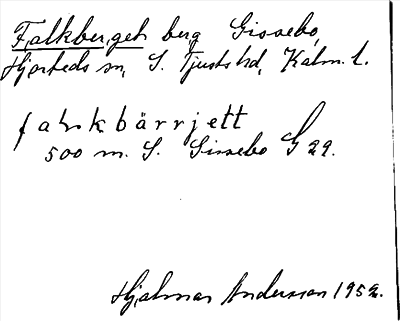 Falkberget berg Gissebo,
Hjorteds sn, S. Tjusts hd, Kalm. l.
falkbärrjett
500 m. S. Gissebo G 29.
Hjalmar Andersson 1952.